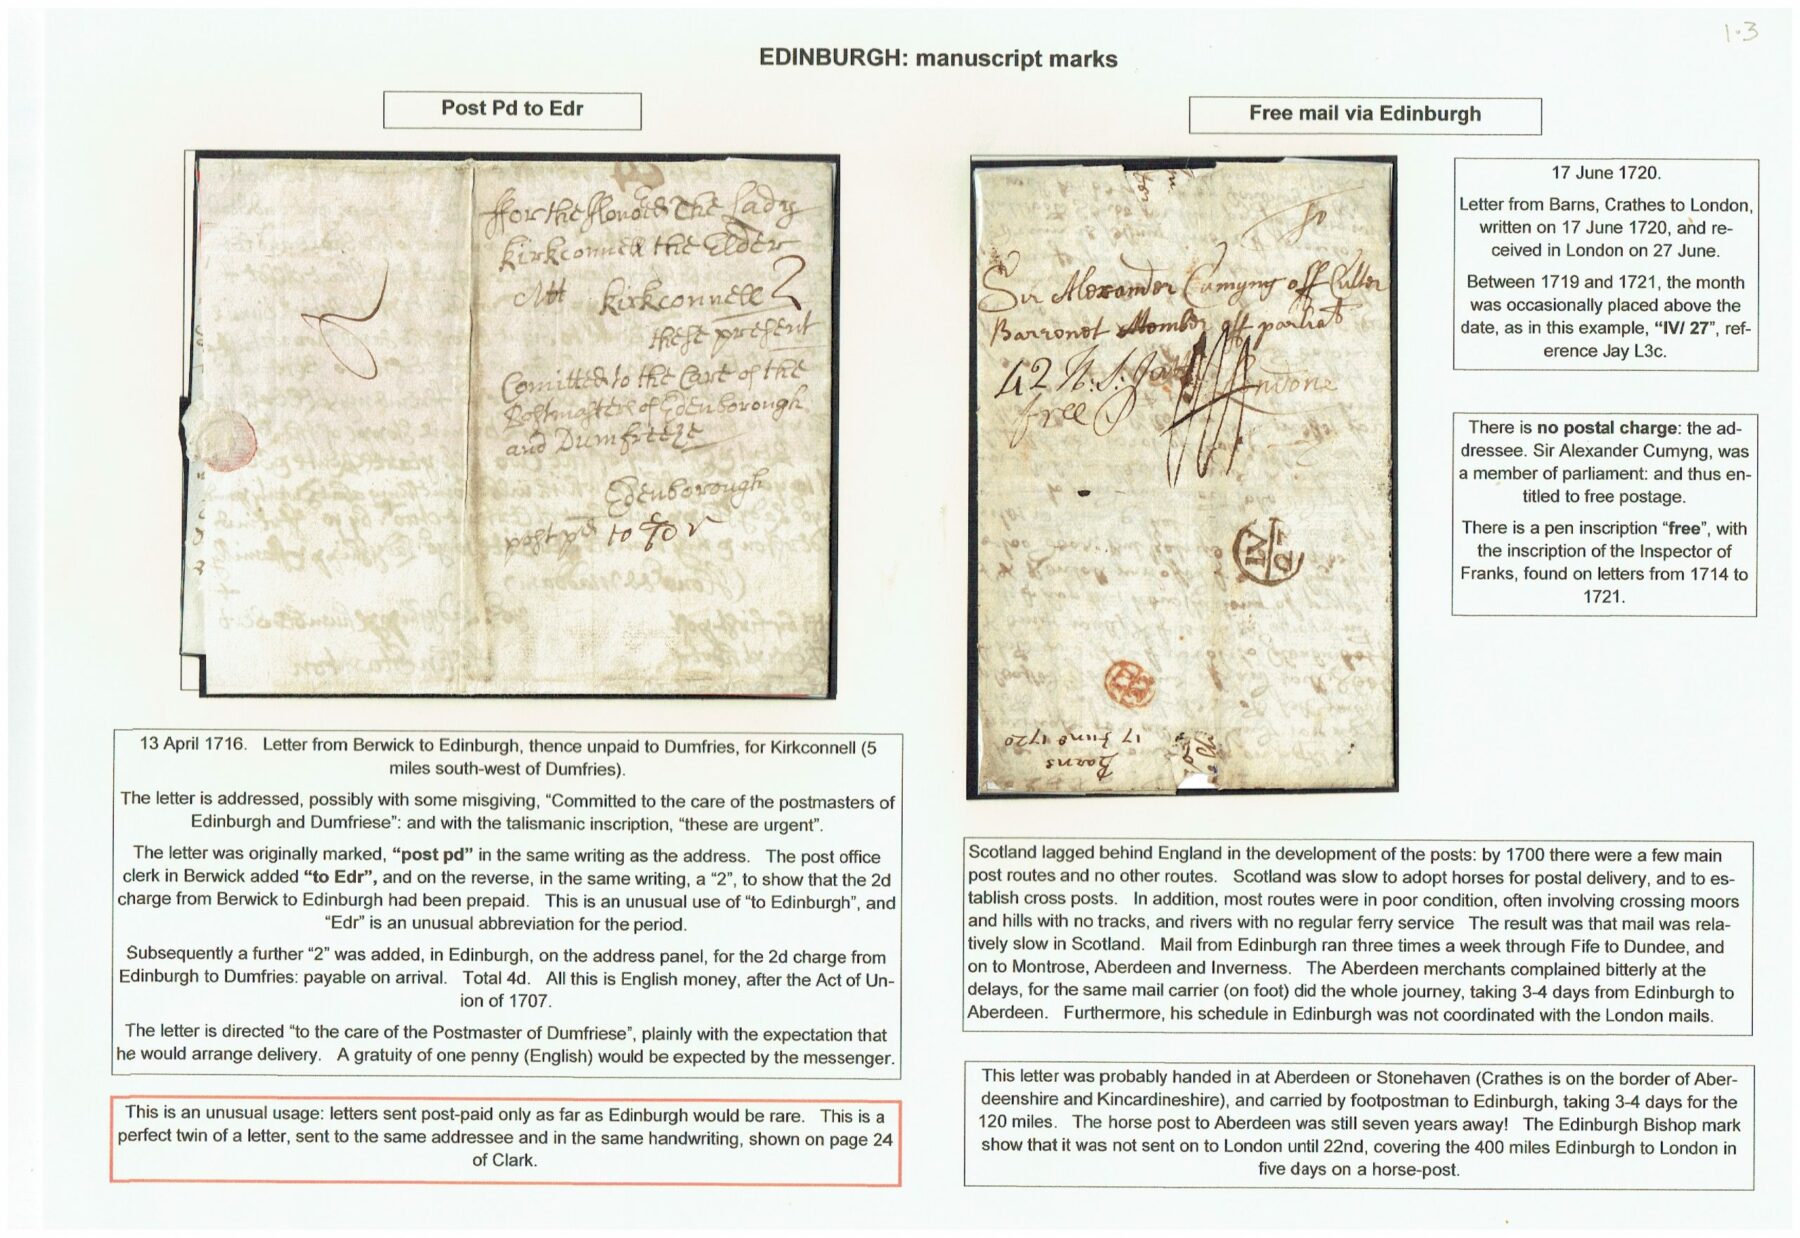 1.3
EDINBURGH: manuscript marks
Post Pd to Edr
ffor the Honoed The Lady
Kirkconnell the Elder
Att Kirkconnell 2
these present
Comitted to the Care of the
Postmasters of Edenborough
and Dumfreeze
Edenborough
post pd to Edr
13 April 1716. Letter from Berwick to Edinburgh, thence unpaid to Dumfries, for Kirkconnell (5
miles south-west of Dumfries).
The letter is addressed, possibly with some misgiving, “Committed to the care of the postmasters of
Edinburgh and Dumfriese”: and with the talismanic inscription, “these are urgent”.
The letter was originally marked, “post pd” in the same writing as the address. The post office
clerk in Berwick added “to Edr”, and on the reverse, in the same writing, a “2”, to show that the 2d
charge from Berwick to Edinburgh had been prepaid. This is an unusual use of “to Edinburgh”, and
“Edr” is an unusual abbreviation for the period.
Subsequently a further “2” was added, in Edinburgh, on the address panel, for the 2d charge from
Edinburgh to Dumfries: payable on arrival. Total 4d. All this is English money, after the Act of Un-
ion of 1707.
The letter is directed “to the care of the Postmaster of Dumfriese”, plainly with the expectation that
he would arrange delivery. A gratuity of one penny (English) would be expected by the messenger.
This is an unusual usage: letters sent post-paid only as far as Edinburgh would be rare. This is a
perfect twin of a letter, sent to the same addressee and in the same handwriting, shown on page 24
of Clark.
Free mail via Edinburgh
To
Sir Alexander Cumyng off Culter
Barronet Member off parliat
free
IV
Barns
17 June 1720
17 June 1720.
Letter from Barns, Crathes to London,
written on 17 June 1720, and re-
ceived in London on 27 June.
Between 1719 and 1721, the month
was occasionally placed above the
date, as in this example, “IV/ 27”, ref-
erence Jay L3c.
There is no postal charge: the ad-
dressee. Sir Alexander Cumyng, was
a member of parliament: and thus en-
titled to free postage.
There is a pen inscription “free”, with
the inscription of the Inspector of
Franks, found on letters from 1714 to
1721.
Scotland lagged behind England in the development of the posts: by 1700 there were a few main
post routes and no other routes. Scotland was slow to adopt horses for postal delivery, and to es-
tablish cross posts. In addition, most routes were in poor condition, often involving crossing moors
and hills with no tracks, and rivers with no regular ferry service The result was that mail was rela-
tively slow in Scotland. Mail from Edinburgh ran three times a week through Fife to Dundee, and
on to Montrose, Aberdeen and Inverness. The Aberdeen merchants complained bitterly at the
delays, for the same mail carrier (on foot) did the whole journey, taking 3-4 days from Edinburgh to
Aberdeen. Furthermore, his schedule in Edinburgh was not coordinated with the London mails.
This letter was probably handed in at Aberdeen or Stonehaven (Crathes is on the border of Aber-
deenshire and Kincardineshire), and carried by footpostman to Edinburgh, taking 3-4 days for the
120 miles. The horse post to Aberdeen was still seven years away! The Edinburgh Bishop mark
show that it was not sent on to London until 22nd, covering the 400 miles Edinburgh to London in
five days on a horse-post.